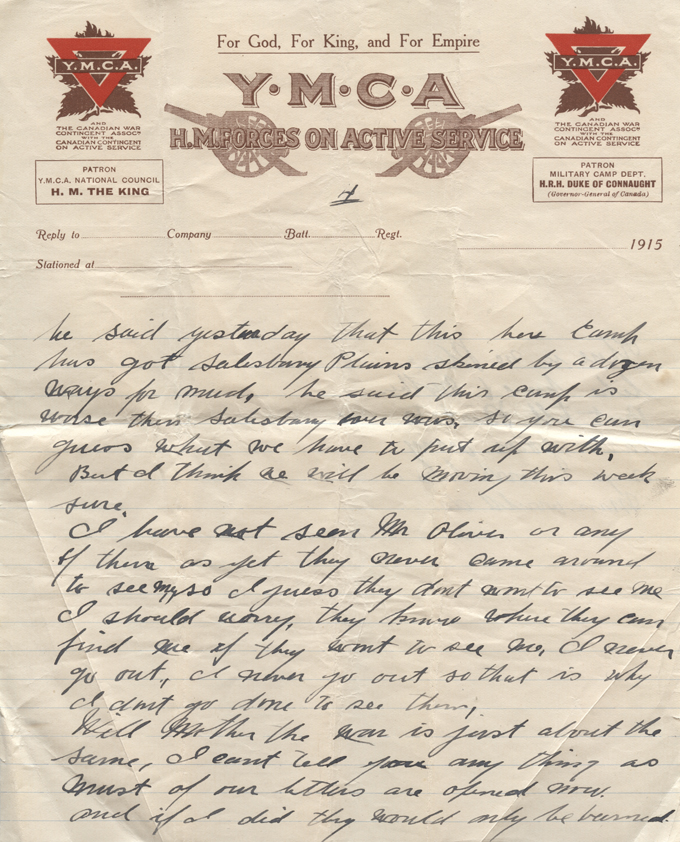 For God, For King, and For Empire
Y·M·C·A
H.M. FORCES ON ACTIVE SERVICE
Y.M.C.A.
AND
THE CANADIAN WAR
CONTINGENT ASSOC<sup>N</sup>
WITH THE
CANADIAN CONTINGENT
ON ACTIVE SERVICE
PATRON
Y.M.C.A. NATIONAL COUNCIL
H. M. THE KING
Y.M.C.A.
AND
THE CANADIAN WAR
CONTINGENT ASSOC<sup>N</sup>
WITH THE
CANADIAN CONTINGENT
ON ACTIVE SERVICE
PATRON
MILITARY CAMP DEPT.
H.R.H. DUKE OF CONNAUGHT
(Governor-General of Canada)
Reply to Company Batt. Regt.
1915
Stationed at
he said yesterday that this here Camp
has got Salesbury Plains skined by a dozen
ways for mud, he said this camp is
worse then Salesbury ever was, so you can
guess what we have to put up with,
But I think we will be moving this week
sure.
I have not seen Mr Oliver or any
of them as yet they never came around
to see my so I guess they dont want to see me
I should worry, they know where they can
find me if they want to see me, I never
go out, I never go out so that is why
I dont go done to see them,
Will Mother the war is just about the
same, I cant tell you any thing as
must of our letters are opened now.
and if I did they would only be burned